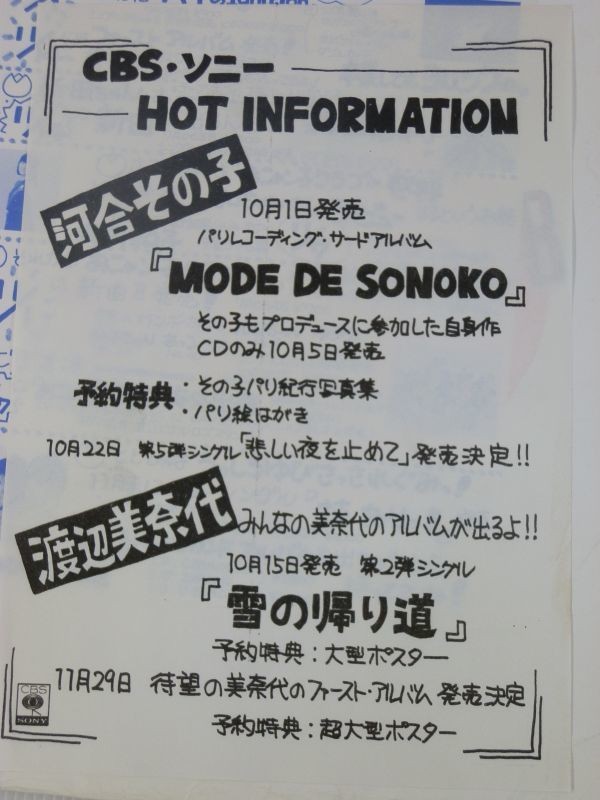 CBS・ソニー
HOT INFORMATION
河合その子
10月1日発売
パリレコーディング・サードアルバム
『MODE DE SONOKO』
その子もプロデュースに参加した自身作
CDのみ10月5日発売
予約特典・その子パリ紀行写真集
・パリ絵はがき
10月22日 第5弾シングル「悲しい夜を止めて」発売決定!!
渡辺美奈代
みんなの美奈代のアルバムが出るよ!!
10月15日発売 第2弾シングル
『雪の帰り道』
予約特典:大型ポスター
11月29日 待望の美奈代のファースト・アルバム 発売決定
予約特典:超大型ポスター
CBS
SONY